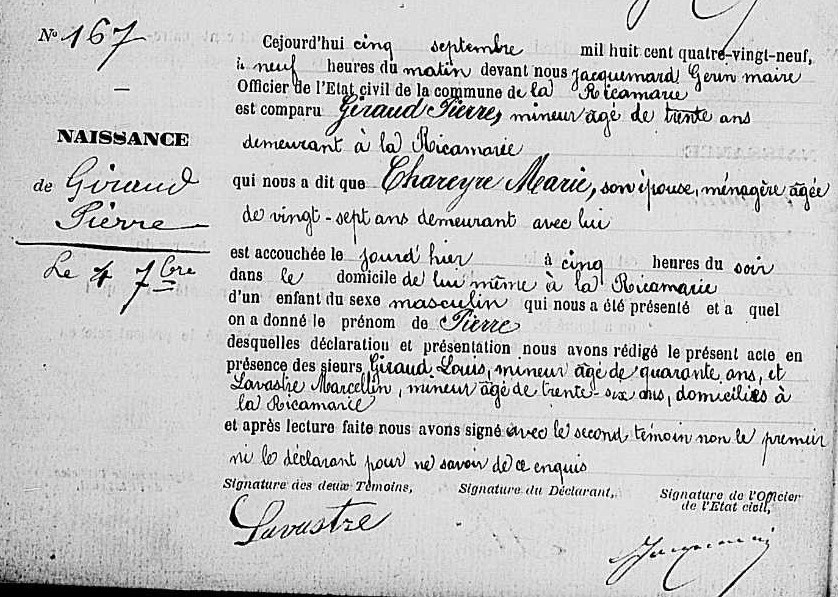 N° 167
NAISSANCE
de Giraud
Pierre
Le 4 7bre
Cejourd'hui cinq septembre mil huit cent quatre-vingt-neuf,
à neuf heures du matin devant nous Jacquemard Gerin maire
Officier de l'Etat civil de la commune de la Ricamarie
est comparu Giraud Pierre, mineur agé de trente ans
demeurant à la Ricamarie
qui nous a dit que Chareyre Marie, son épouse, ménagère agée
de vingt-sept ans demeurant avec lui
est accouchée le jourd'hier à cinq heures du soir
dans le domicile de lui même à la Ricamarie
d'un enfant du sexe masculin qui nous a été présenté et a quel
on a donné le prénom de Pierre
desquelles déclaration et présentation nous avons rédigé le présent acte en
présence des sieurs Giraud Louis, mineur agé de quarante ans, et
Lavastre Marcellin, mineur agé de trente-six ans, domiciliés à
la Ricamarie
et après lecture faite nous avons signé avec le second témoin non le premier
ni le déclarant pour ne savoir de ce enquis
Signature des deux Témoins, Signature du Déclarant, Signature de l'Officier
de l'Etat civil,
Lavastre